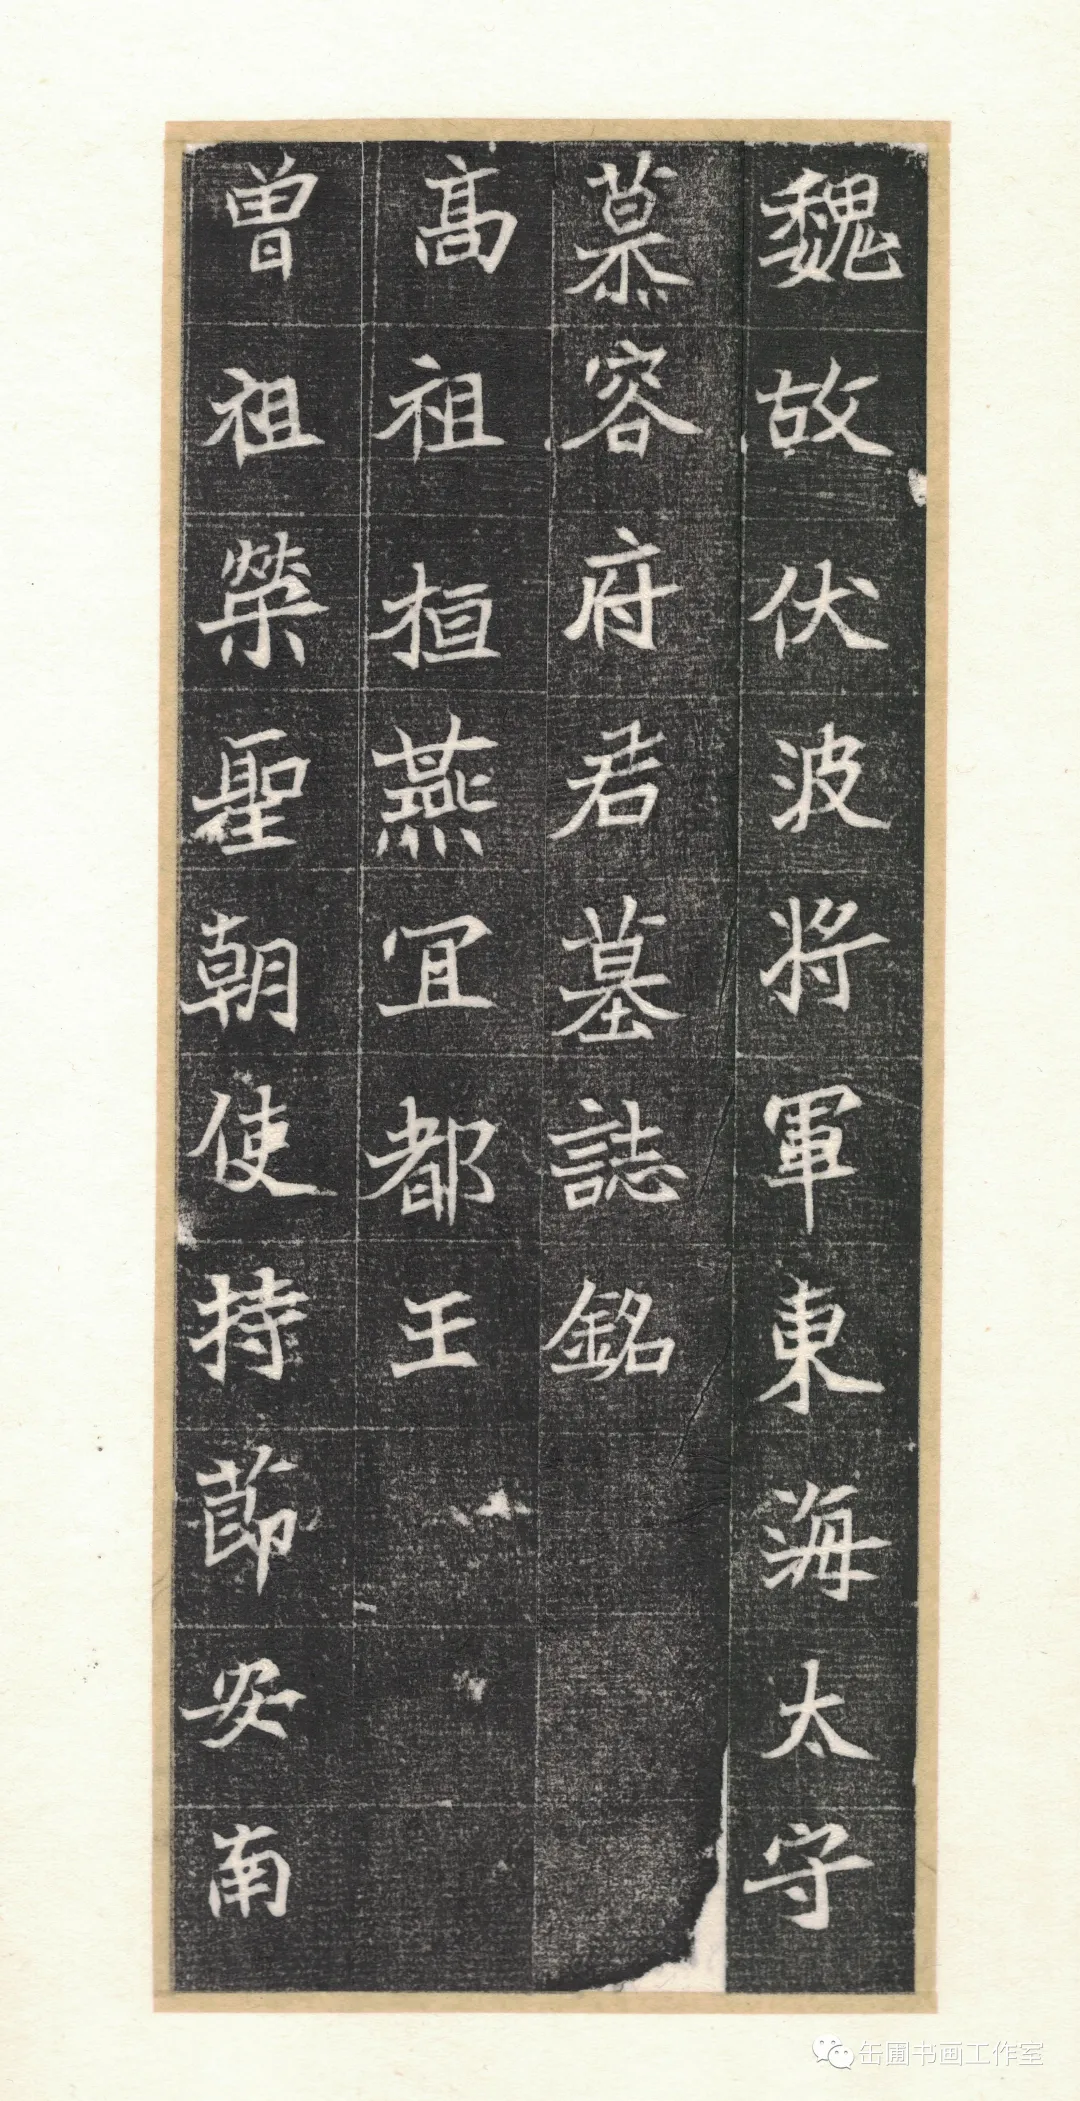 魏故伏波将軍東海太守
慕容府君墓誌銘
高祖桓燕宜都王
曾祖榮聖朝使持節安南
缶圃书画工作室